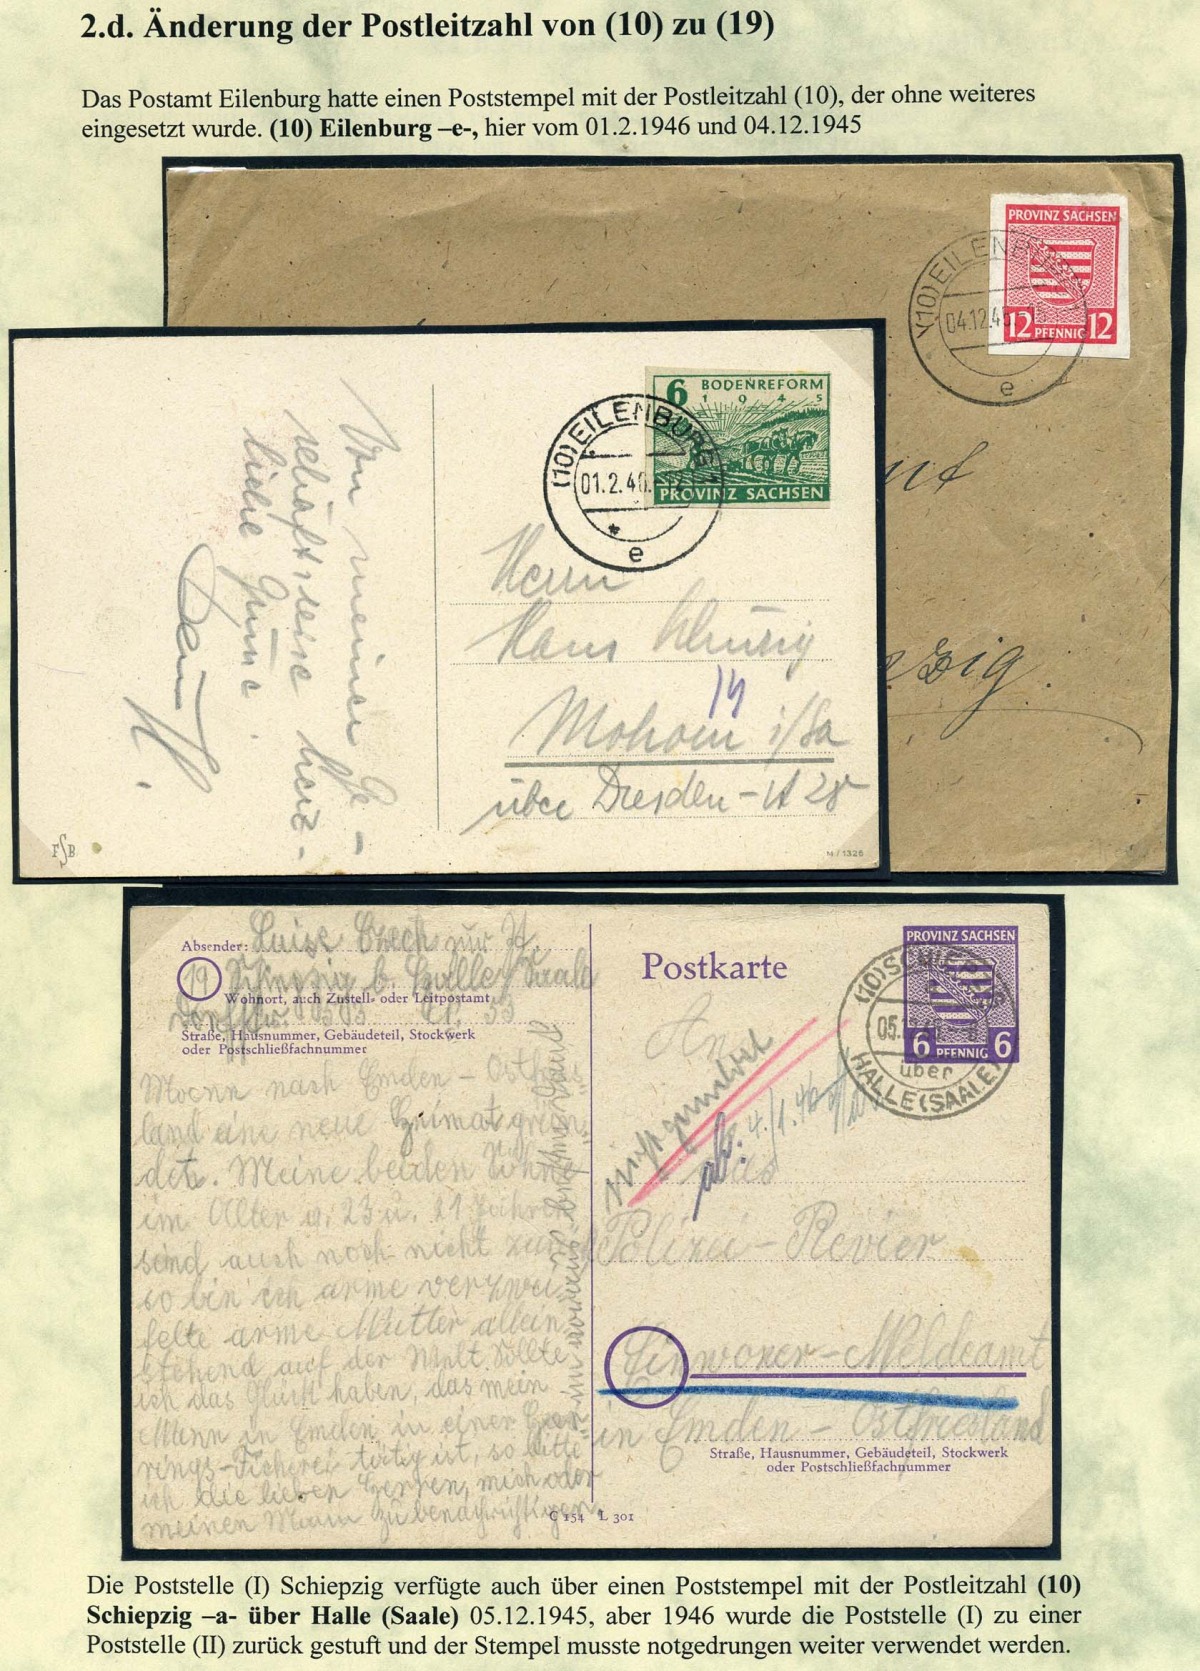 2.d. Änderung der Postleitzahl von (10) zu (19)
Das Postamt Eilenburg hatte einen Poststempel mit der Postleitzahl (10), der ohne weiteres
eingesetzt wurde. (10) Eilenburg –e-, hier vom 01.2.1946 und 04.12.1945
PROVINZ SACHSEN
12 PFENNIG 12
(10) EILENBURG
04.12.45
e
zig.
6 BODENREFORM
1945
PROVINZ SACHSEN
(10) EILENBURG
01.2.46
e
Von meiner Ge-
schäftsreise herz-
liche Grüße
Herrn
Hans
14
Mohorn i/Sa
über Dresden-A 28
FSB
M/1326
Absender: Luise
19 Schiepzig b. Halle/Saale
Wohnort, auch Zustell- oder Leitpostamt
Straße, Hausnummer, Gebäudeteil, Stockwerk
oder Postschließfachnummer
Mann nach Emden - Ostfries-
land eine neue Heimat grün-
det. Meine beiden Söhne
im Alter v. 23 u. 21 Jahren
sind auch noch nicht
so bin ich arme verzwei-
felte arme Mutter allein
stehend auf der Welt. Sollte
ich das Glück haben, das mein
Mann in Emden in einer Her-
rings-Ficherei tätig ist, so bitte
ich die lieben Herren, mich oder
meinen Mann zu benachrichtigen
C 154 L 301
Postkarte
PROVINZ SACHSEN
6 PFENNIG 6
(10) SCHIEPZIG
über
HALLE (SAALE)
An
das
Polizei-Revier
Einwoner-Meldeamt
in Emden - Ostfriesland
Straße, Hausnummer, Gebäudeteil, Stockwerk
oder Postschließfachnummer
Die Poststelle (I) Schiepzig verfügte auch über einen Poststempel mit der Postleitzahl (10)
Schiepzig –a- über Halle (Saale) 05.12.1945, aber 1946 wurde die Poststelle (I) zu einer
Poststelle (II) zurück gestuft und der Stempel musste notgedrungen weiter verwendet werden.